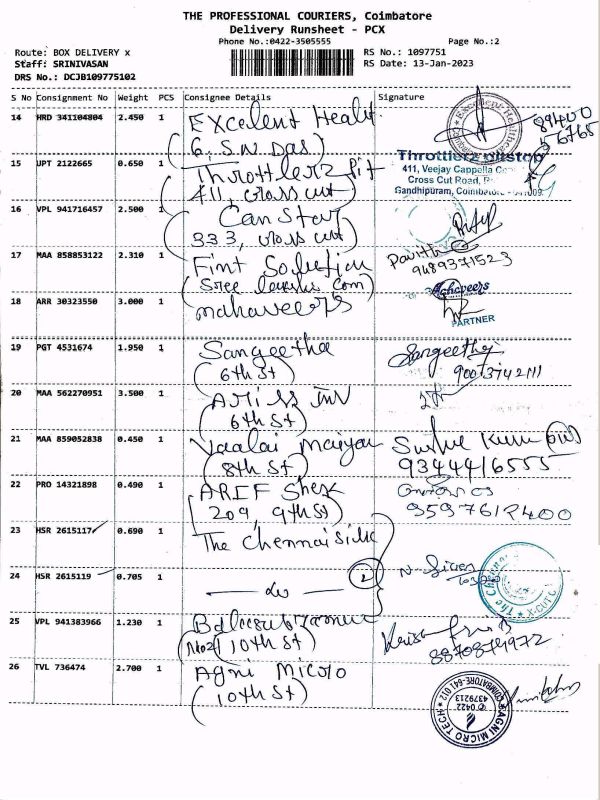 THE PROFESSIONAL COURIERS, Coimbatore
Delivery Runsheet - PCX
Phone No.:0422-3505555 Page No.:2
Route: BOX DELIVERY x RS No.: 1097751
Staff: SRINIVASAN RS Date: 13-Jan-2023
DRS No.: DCJB109775102
S No Consignment No Weight PCS Consignee Details Signature
14 HRD 341104804 2.450 1 Excelent Healt
(6, S.N Das)
89400
56765
15 UPT 2122665 0.650 1 Throttlerz Pit
(411, cross cut)
Throttlerz pitstop
411, Veejay Cappella
Cross Cut Road,
Gandhipuram, Coimbatore
16 VPL 941716457 2.500 1 Can Star
333, cross cut)
17 MAA 858853122 2.310 1 Fint Solution
Pavith
9489371523
18 ARR 30323550 3.000 1 mahaveer's
PARTNER
19 PGT 4531674 1.950 1 Sangeetha
(6th St)
Sangeetha
9003742111
20 MAA 562270951 3.500 1
(6th St)
21 MAA 859052838 0.450 1 Vaalai
(8th St)
9344416555
22 PRO 14321898 0.490 1 ARIF
209, 9th St)
9597612400
23 HSR 2615117 0.690 1 The Chennai Silk
24 HSR 2615119 0.705 1 — do — 2
The Chenn
X-CUT
25 VPL 941383966 1.230 1
(No2/ 10th St)
Krish
8870874972
26 TVL 736474 2.700 1 Agni Micro
(10th St)
AGNI MICRO TECH
COIMBATORE-641 012
0422
4379213